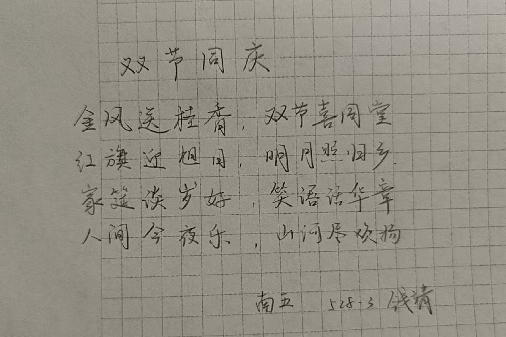 双节同庆
金风送桂香，双节喜同堂
红旗迎旭日，明月照归乡.
家筵谈岁好，笑语话华章
人间今夜乐，山河尽欢扬
南五 528-3 钱靖